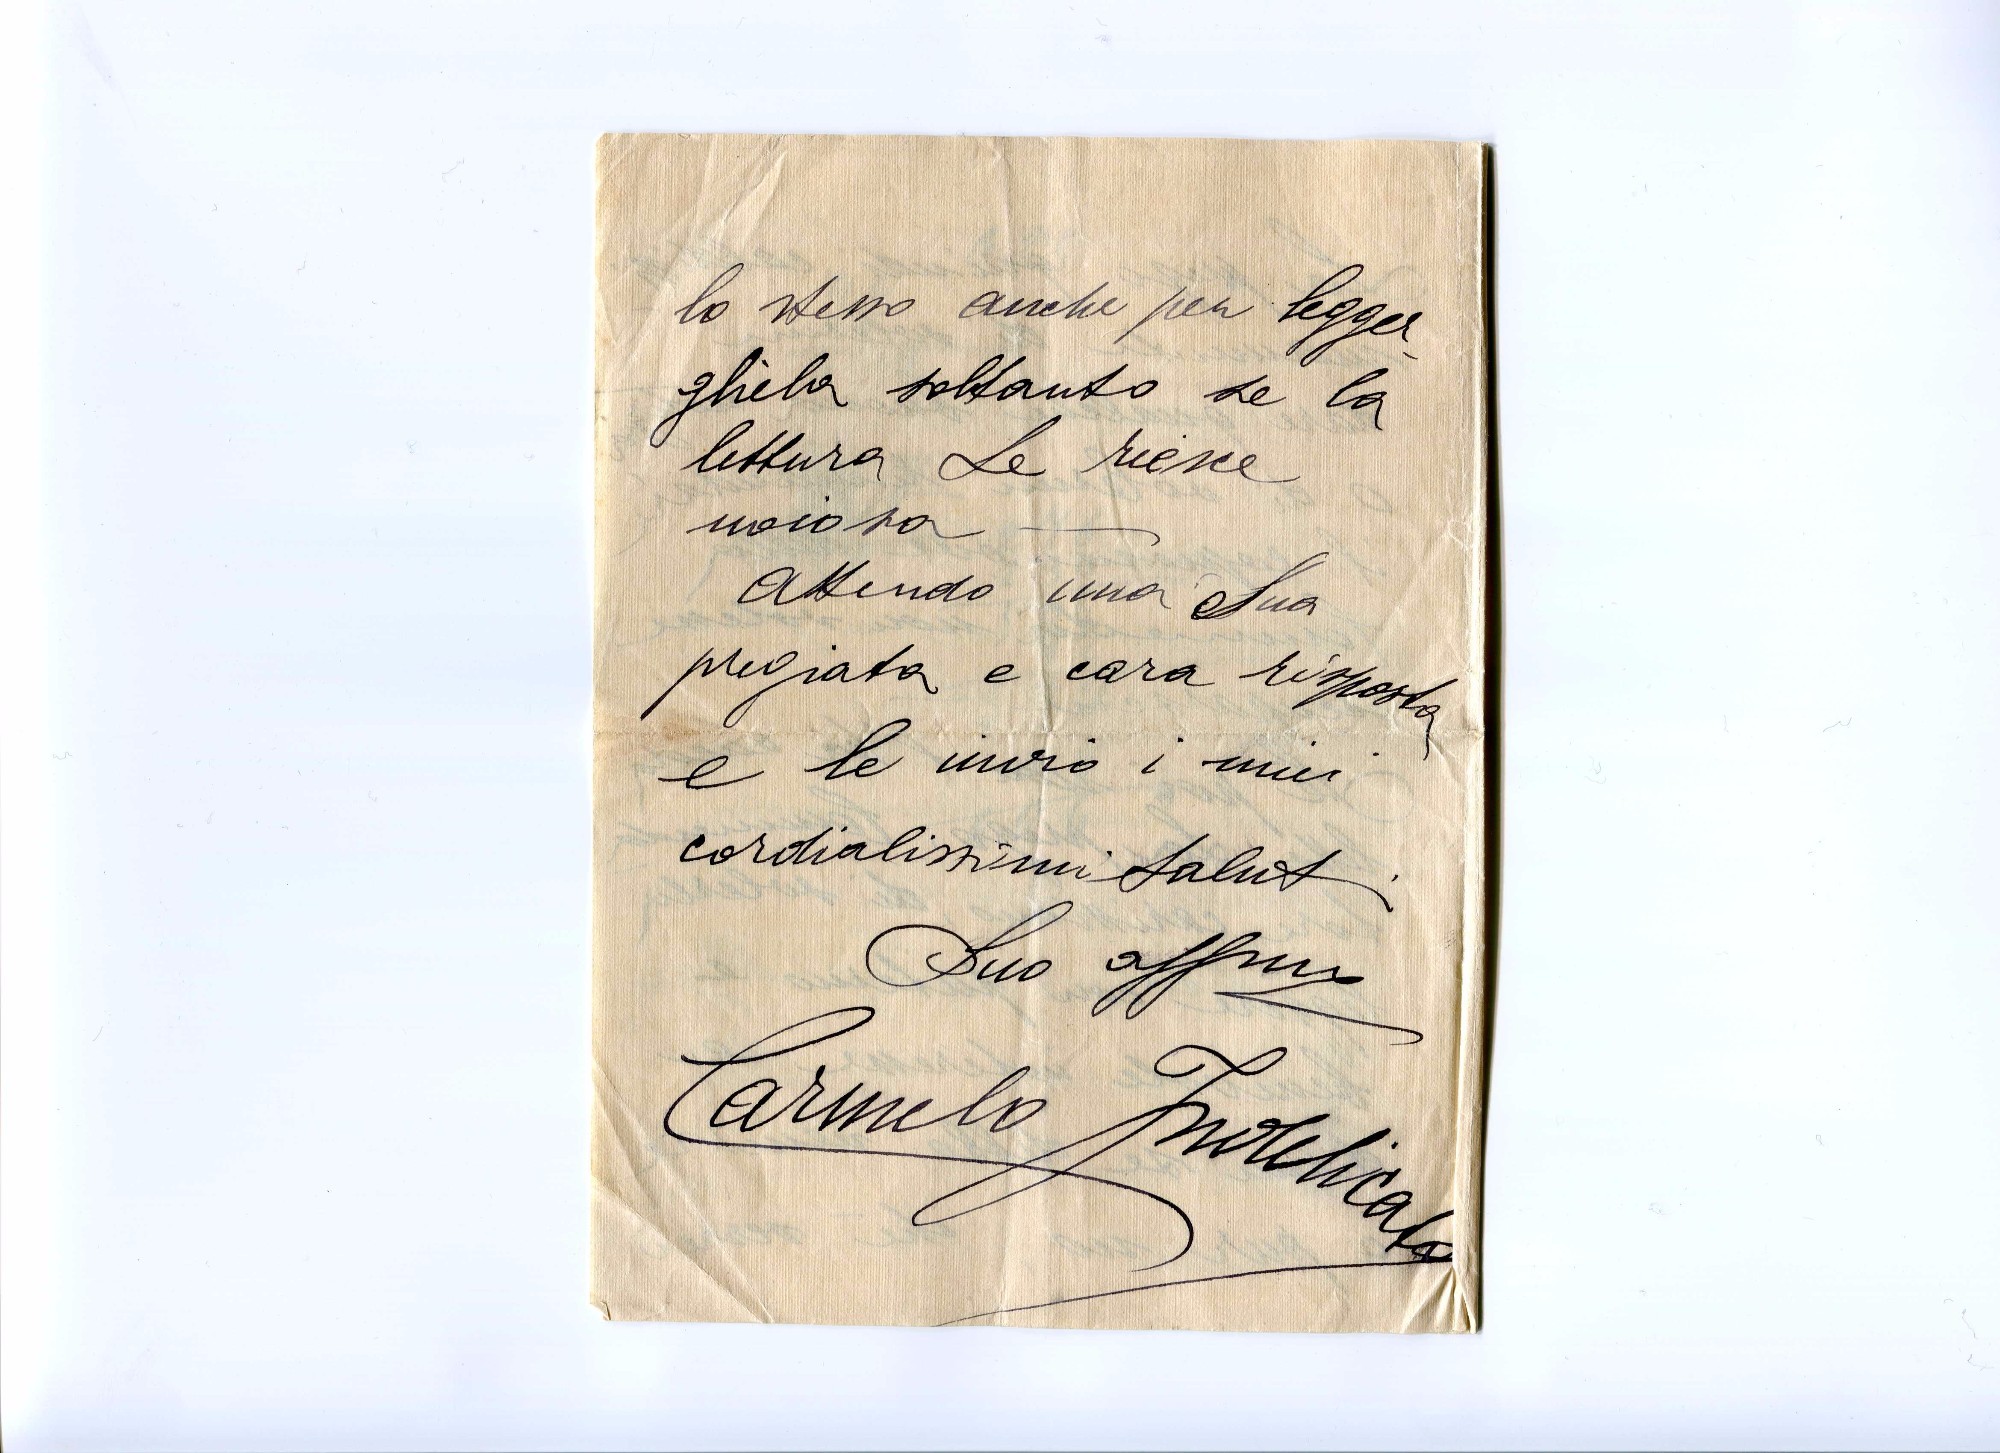 lo stesso anche per legger-
gliela soltanto se la
lettura Le riesce
noiosa —
Attendo una Sua
pregiata e cara risposta
e le invio i miei
cordialissimi saluti
Suo affmo
Carmelo